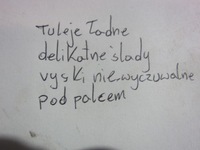 Tuleje Ładne
delikatne ślady
vyski niewyczuwalne
pod palcem